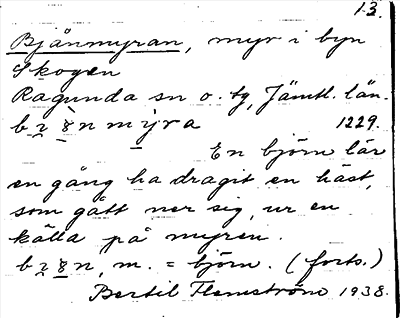 13.
Bjänmyran, myr i byn
Skogen
Ragunda sn o. tg, Jämtl. län.
myra 1229.
En björn lär
en gång ha dragit en häst,
som gått ner sig, ur en
källa på myren.
m. = björn. (forts.)
Bertil Flemström 1938.